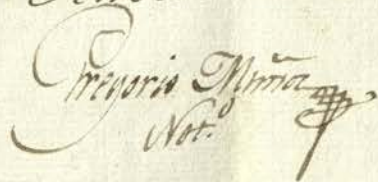 Gregorio Muñoz
Not.º